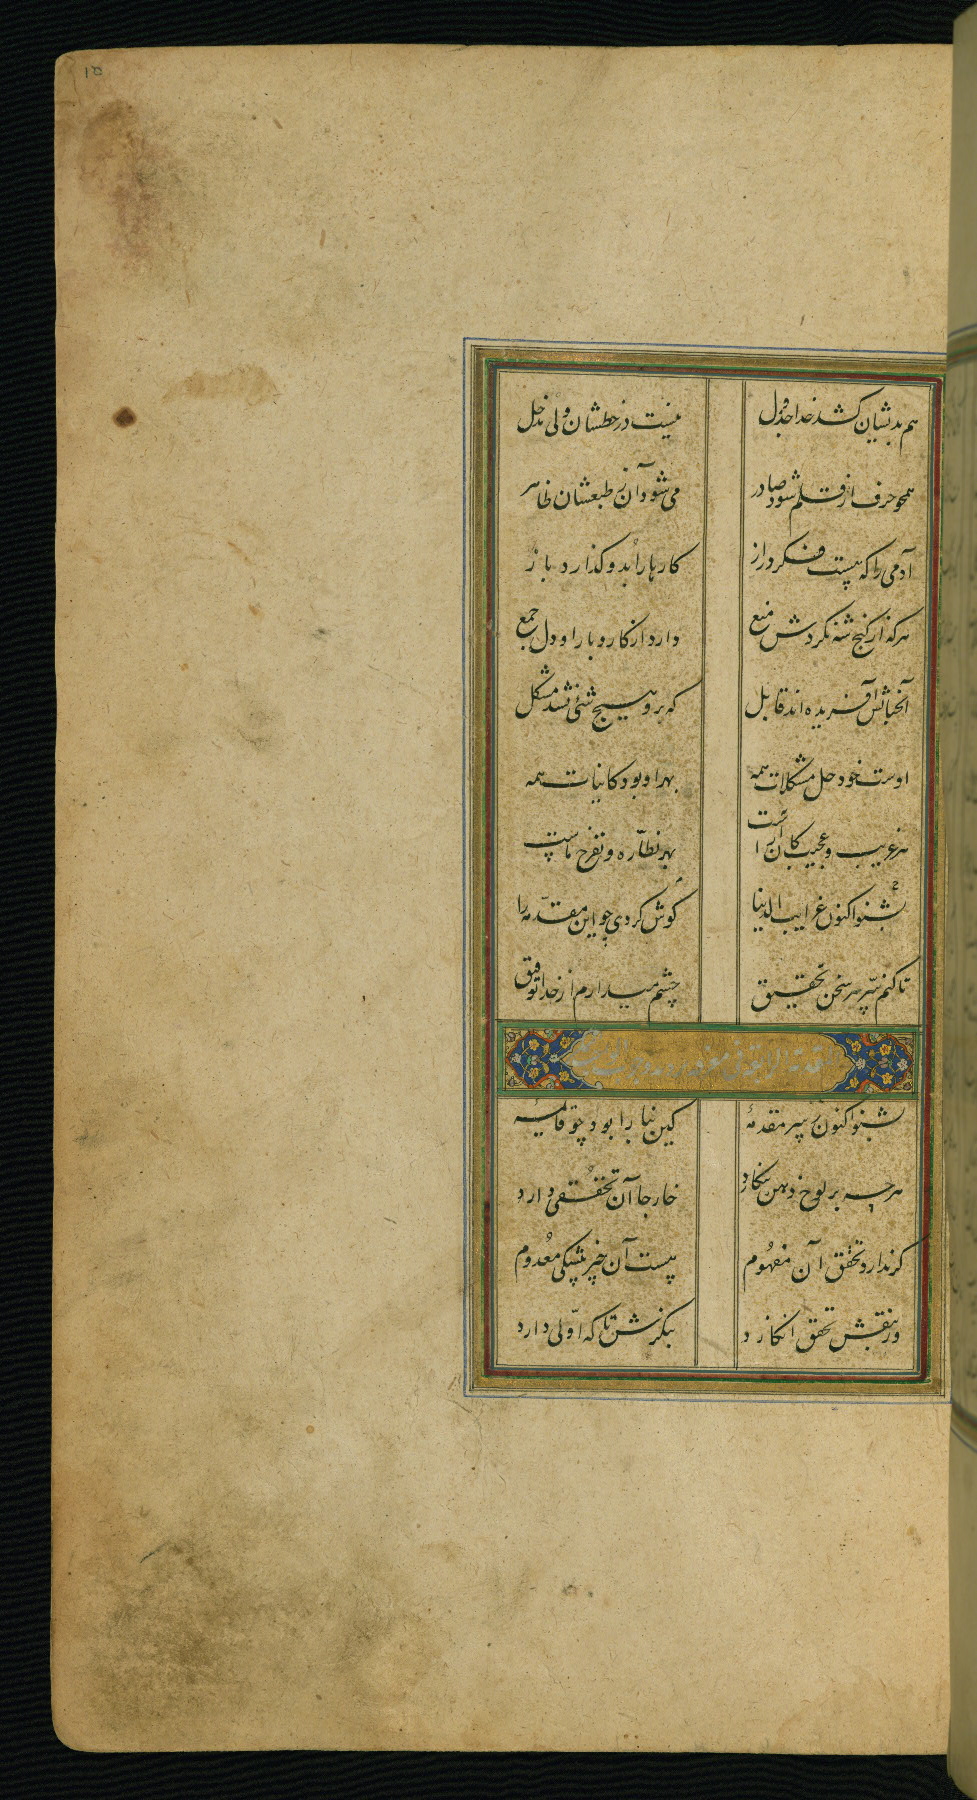 ١٥
هم بدیشان کشد خدا جدول نیست در خطشان ولی مدخل
همچو حرف از قلم شود صادر می شود آن ز طبعشان ظاهر
آدمی را که نیست فکر دراز کارها را بدو گذارد باز
هر که از کنج شه نکردش منع دارد از کار و بار او دل جمع
آنچنانش آفریده اند قابل که برو هیچ شئی نشد مشکل
اوست خود حل مشکلات همه بهر او بود کاینات همه
هر غریب و عجیب کان آراست بهر نظّاره و تفرج ماست
بشنو اکنون غرایب الدنیا گوش کردی چو این مقدّمه را
تا کنم سر بسر سخن تحقیق چشم میدارم از خدا توفیق
بشنو اکنون ز سر مقدمهٔ کین بنا را بود چو قائمهٔ
هرچه بر لوح ذهن بنگارد خارجا آن تحققی دارد
گر ندارد تحقق آن مفهوم نیست آن چیز بیشکی معدوم
ور بنقش تحقق انگارد بنگرش تا که اوّلی دارد